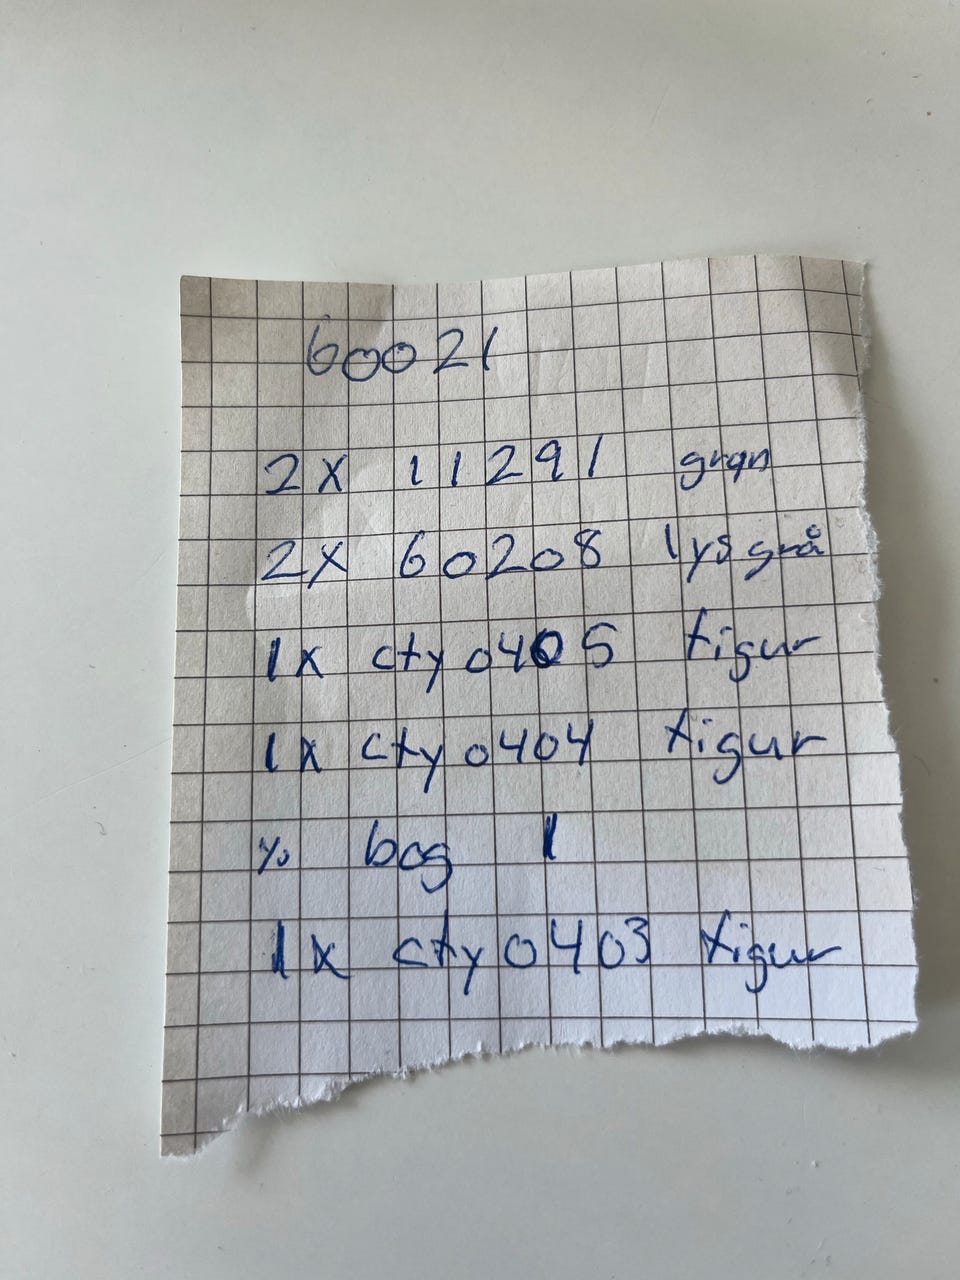 60021
2x 11291 grøn
2x 60208 lys grå
1x cty0405 figur
1x cty0404 figur
% bog 1
1x cty0403 figur